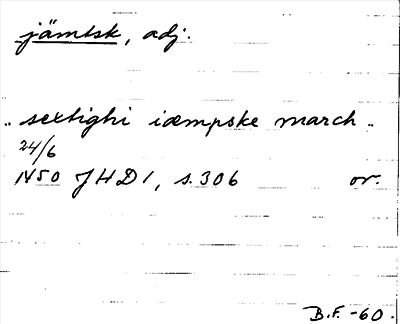 jämtsk, adj.
.. sextighi iæmpske march ..
24/6
1450 JHD 1, s. 306 or.
B.F. -60.